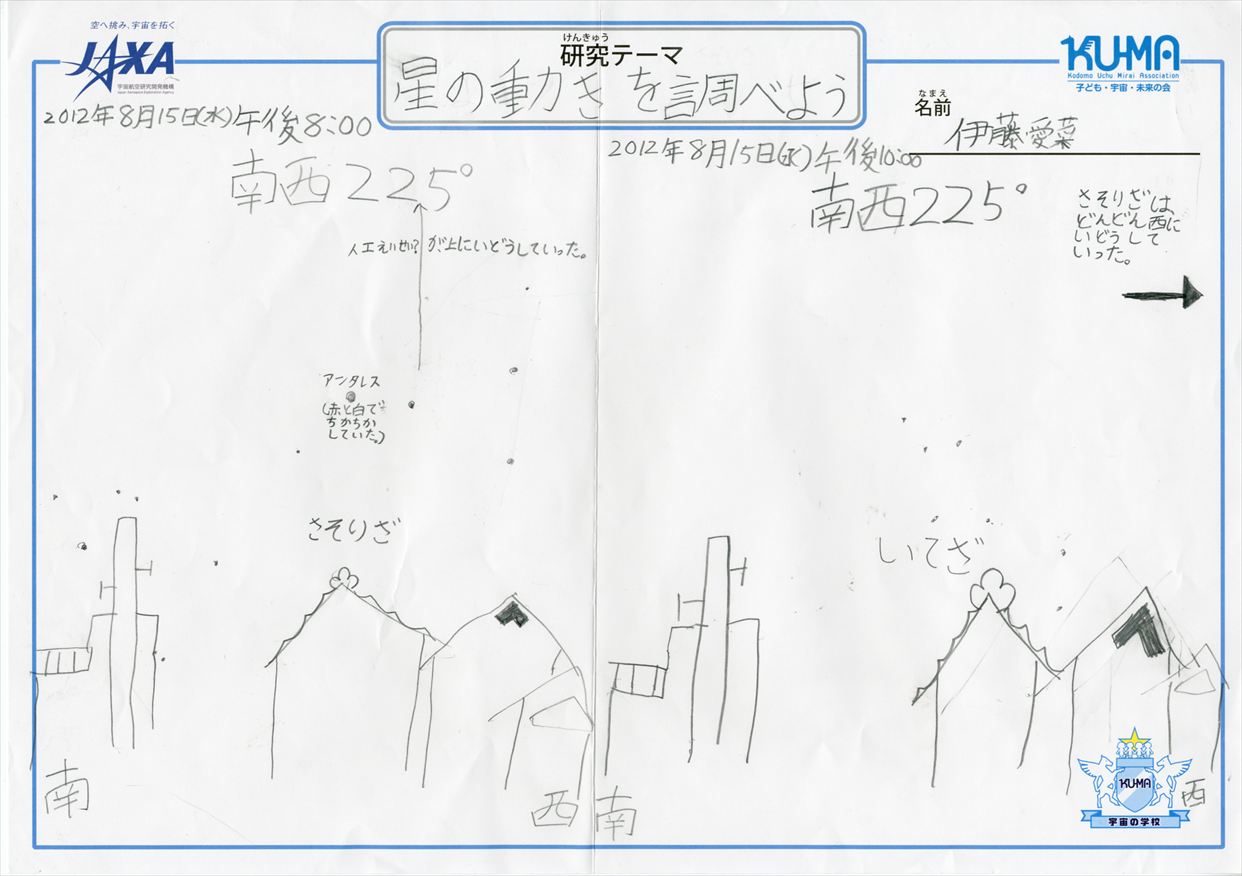 空へ挑み、宇宙を拓く
JAXA
宇宙航空研究開発機構
Japan Aerospace Exploration Agency
けんきゅう
研究テーマ
星の動きを調べよう
KU-MA
Kodomo Uchu Mirai Association
子ども・宇宙・未来の会
なまえ
名前
伊藤愛菜
2012年8月15日(水)午後8:00
南西225°
人工えいせい?が上にいどうしていった。
アンタレス
(赤と白で
ちかちか
していた。)
さそりざ
南
西
2012年8月15日(水)午後10:00
南西225°
さそりざは、
どんどん西に
いどうして
いった。
いてざ
南
西
KU-MA
宇宙の学校